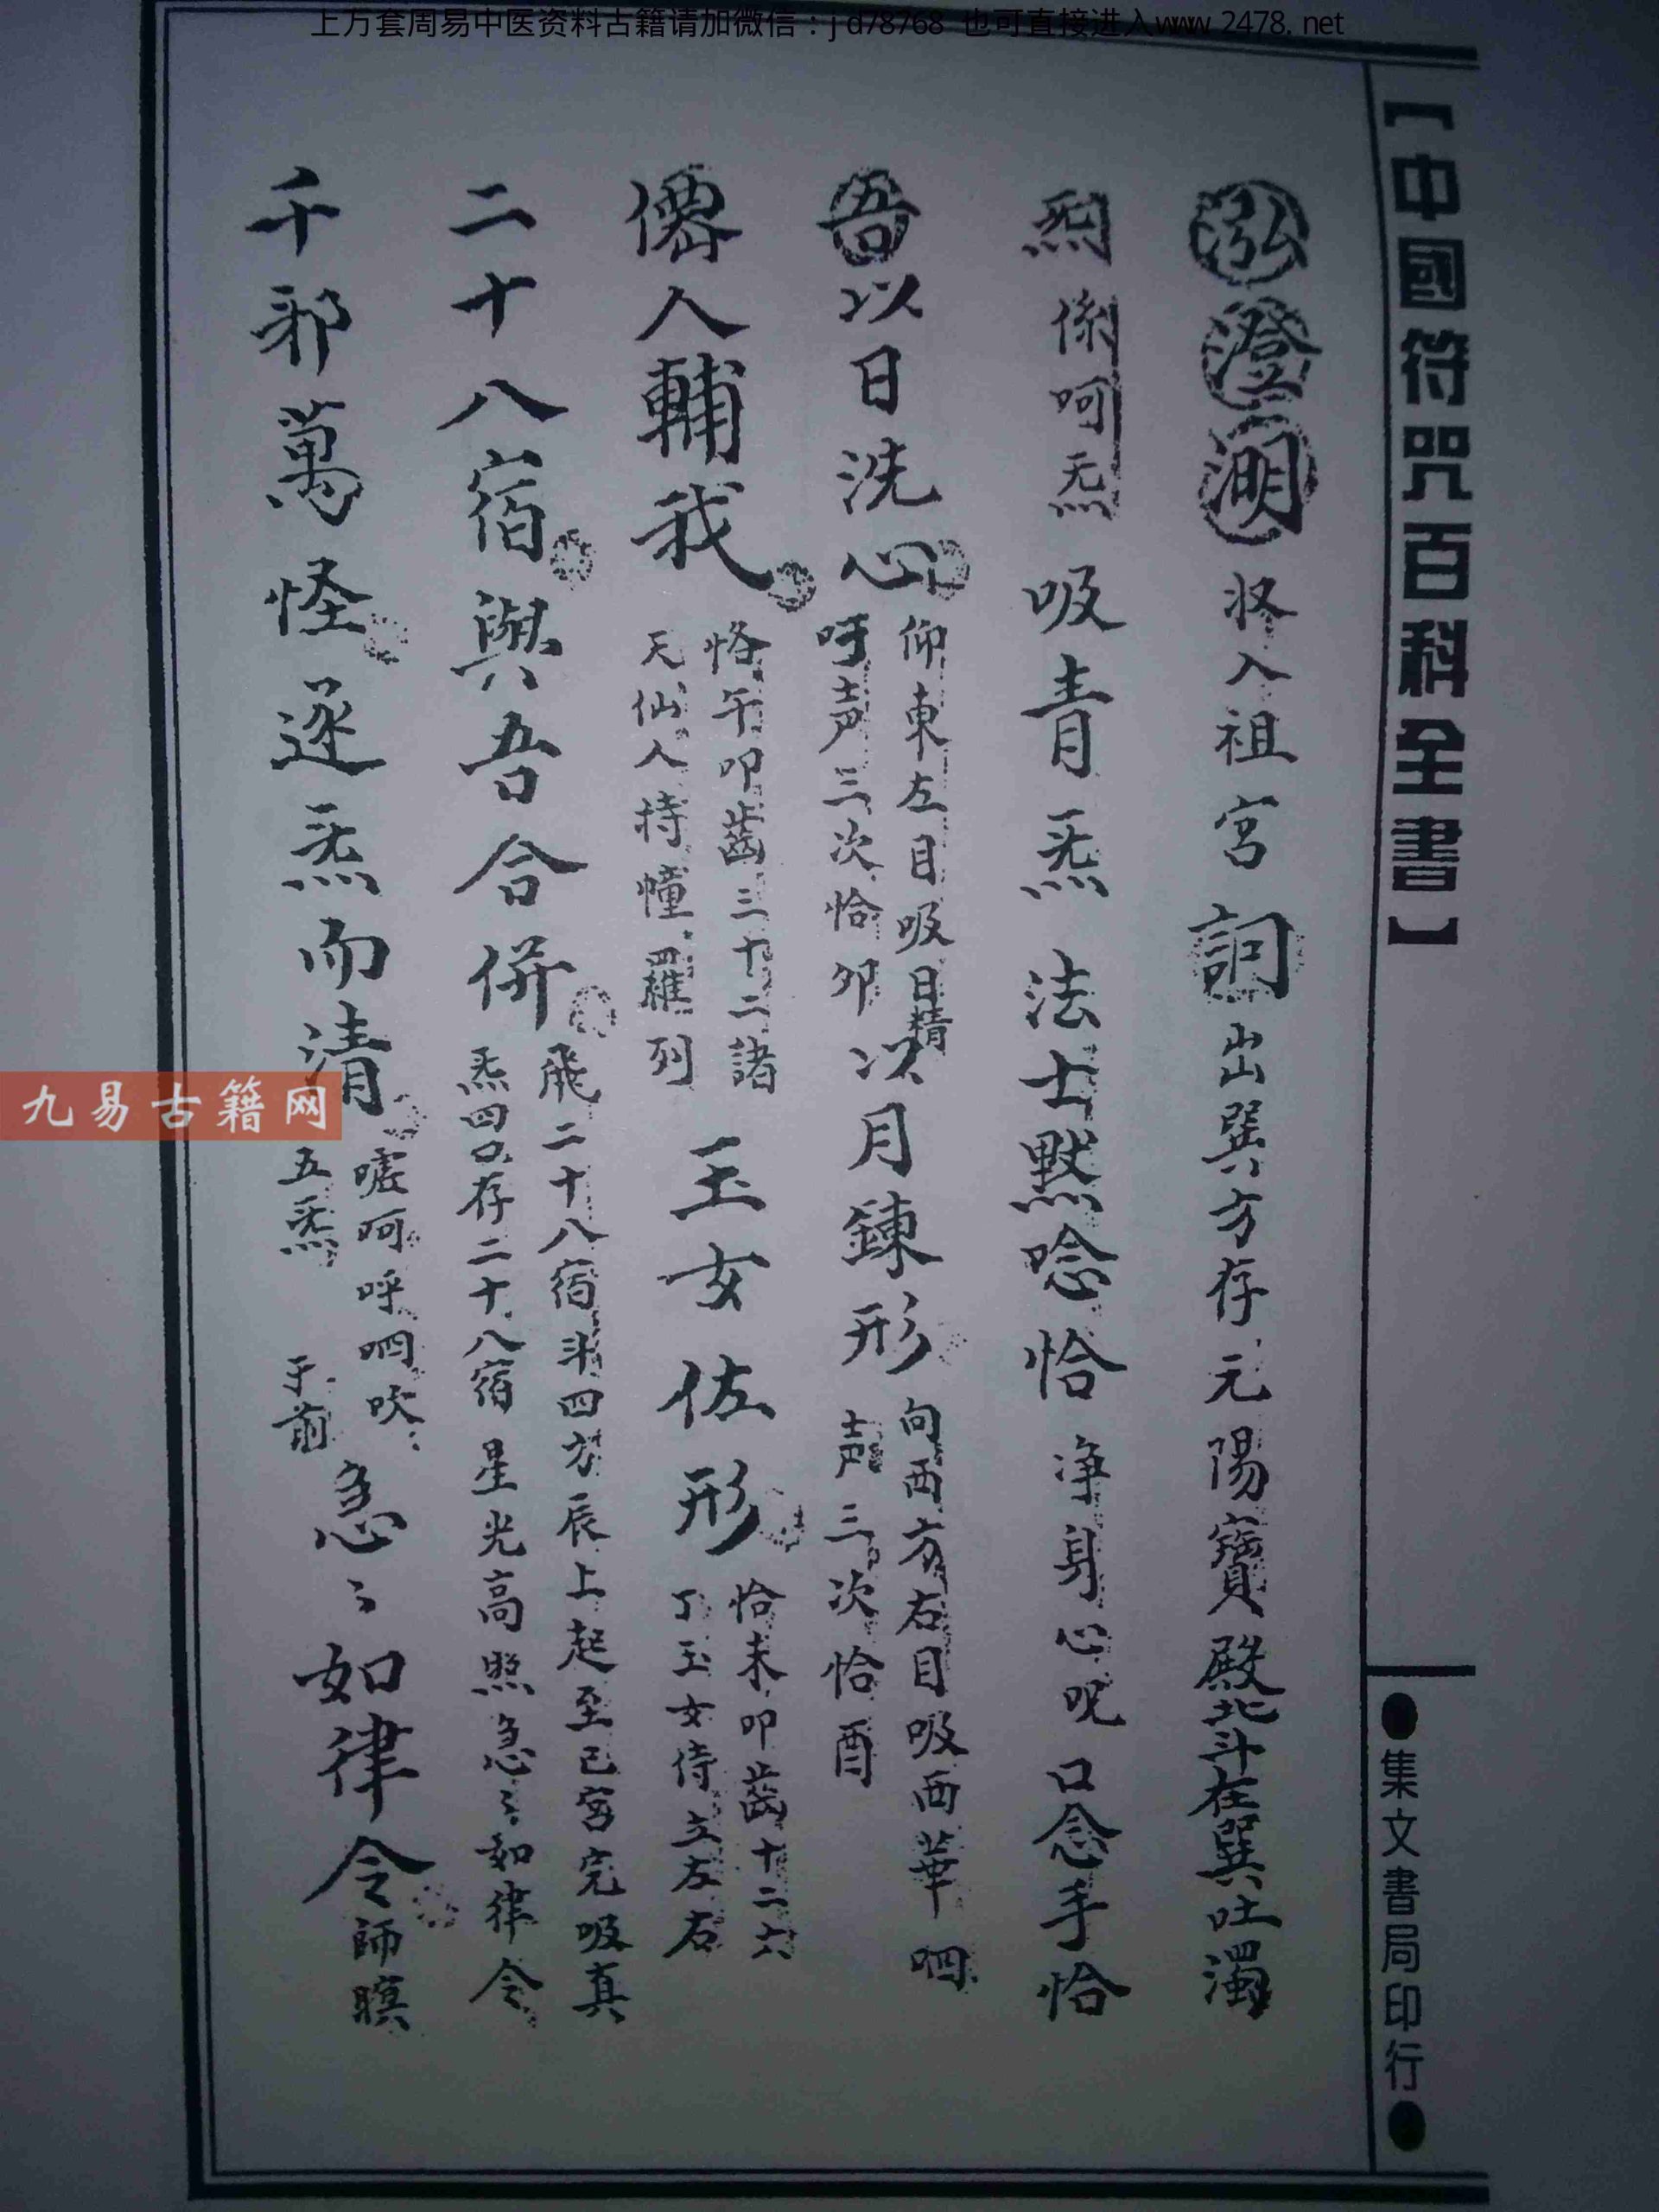 上万套周易中医资料古籍请加微信：jd78768 也可直接进入www.2478.net
【中國符咒百科全書】
●集文書局印行●
泓澄渊将入祖宮訶出巽方存元陽寶殿北斗在巽吐濁
炁係呵炁吸青炁法士默唸恰净身心呪口念手恰
吾以日洗心
仰東左目吸日精
呵声三次恰卯
以月鍊形
向西方右目吸西華呬
声三次恰酉
僊人輔我
恪午叩齒三十二諸
天仙人持幢羅列
玉女佐形
恰未叩齒十二六
丁玉女侍立左右
二十八宿與吾合併
飛二十八宿斗四方辰上起至已宮完吸真
炁四口存二十八宿星光高照急〻如律令
千邪萬怪逐炁而清
嘘呵呼呬吹
五炁 于前
急〻如律令師瞑
九易古籍网